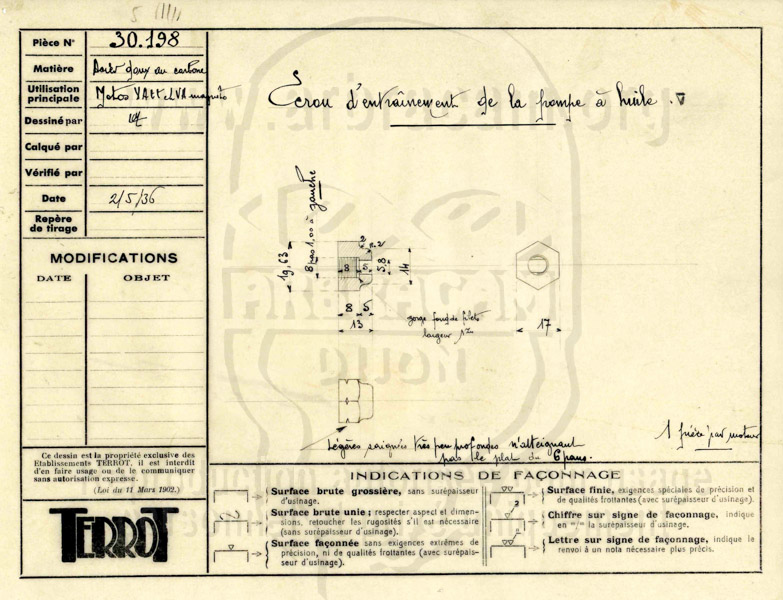 Pièce N° 30.198
Matière Acier doux au carbone
Utilisation principale Motos VA et LVA magnéto
Dessiné par
Calqué par
Vérifié par
Date 2/5/36
Repère de tirage
MODIFICATIONS
DATE OBJET
Ecrou d'entraînement de la pompe à huile.
8 pas 1,00 à gauche
19,63
2
R.2
8
5
5.8
14
8 5
13
gorge fond de filets
largeur 1
17
Légères saignées très peu profondes n'atteignant
pas le plat du 6 pans.
1 pièce par moteur
Ce dessin est la propriété exclusive des
Etablissements TERROT, il est interdit
d'en faire usage ou de le communiquer
sans autorisation expresse.
(Loi du 11 Mars 1902.)
TERROT
INDICATIONS DE FAÇONNAGE
Surface brute grossière, sans surépaisseur
d'usinage.
Surface brute unie; respecter aspect et dimen-
sions, retoucher les rugosités s'il est nécessaire
(sans surépaisseur d'usinage).
Surface façonnée sans exigences extrêmes de
précision, ni de qualités frottantes (avec surépais-
seur d'usinage).
Surface finie, exigences spéciales de précision et
de qualités frottantes (avec surépaisseur d'usinage).
3
Chiffre sur signe de façonnage, indique
en m/m la surépaisseur d'usinage.
Lettre sur signe de façonnage, indique le
renvoi à un nota nécessaire plus précis.
www.arbracam.org
ARBRACAM
DIJON